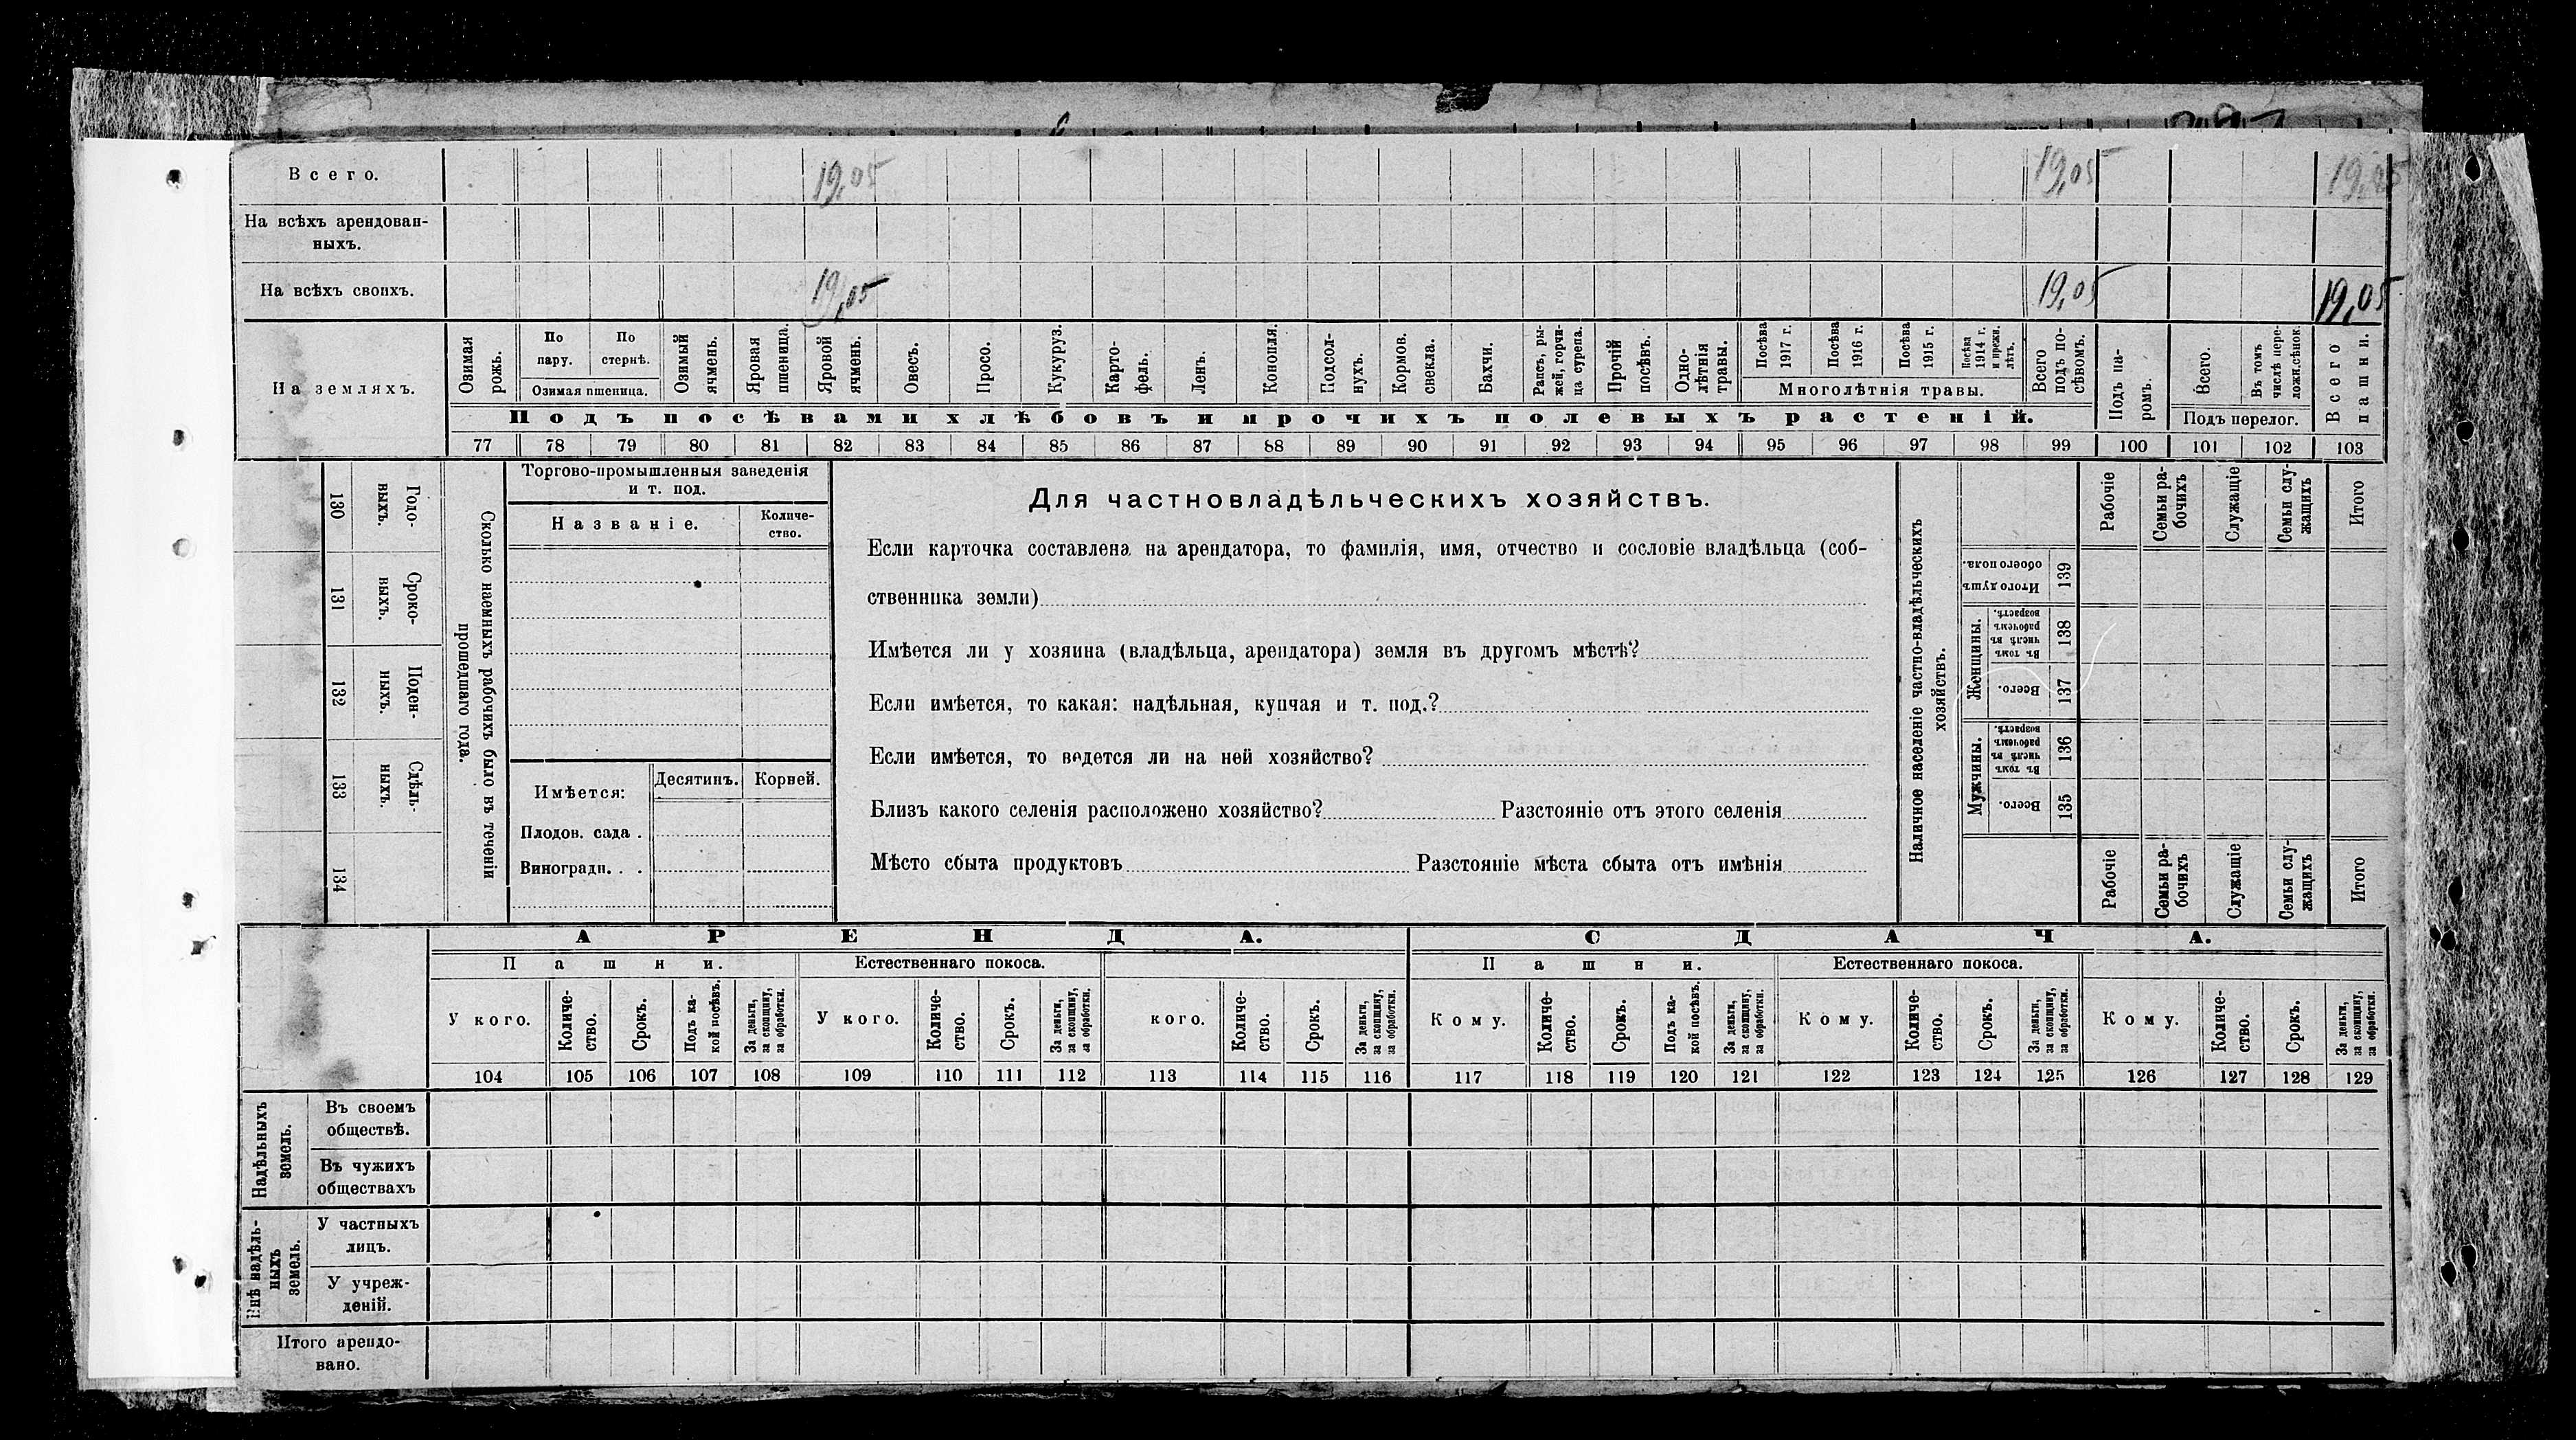 Всего. 19,05 19,05 19,05
На всѣхъ арендован-
ныхъ.
На всѣхъ своихъ. 19,05 19,05 19,05
На земляхъ.
Озимая рожь.
По пару.
По стернѣ.
Озимая пшеница.
Озимый ячмень.
Яровая пшеница.
Яровой ячмень.
Овесъ.
Просо.
Кукуруз.
Карто-
фель.
Ленъ.
Конопля.
Подсол-
нухъ.
Кормов. свекла.
Бахчи.
Рапсъ, ры-
жей, горчи-
ца сурепа.
Прочій посѣвъ.
Одно-
лѣтнія травы.
Посѣва 1917 г.
Посѣва 1916 г.
Посѣва 1915 г.
Посѣва 1914 г. и прежн. лѣтъ.
Многолѣтнія травы.
Всего подъ по-
сѣвомъ.
Подъ посѣвами хлѣбовъ и прочихъ полевыхъ растеній.
Подъ па-
ромъ.
Всего.
Въ томъ числѣ пере-
лож.сѣнок.
Подъ перелог.
Всего пашни.
77 78 79 80 81 82 83 84 85 86 87 88 89 90 91 92 93 94 95 96 97 98 99 100 101 102 103
130 Годо-
выхъ.
131 Сроко-
выхъ.
132 Поден-
ныхъ.
133 Сдѣль-
ныхъ.
134
Сколько наемныхъ рабочихъ было въ теченіи
прошедшаго года.
Торгово-промышленныя заведенія
и т. под.
Названіе.
Количе-
ство.
Имѣется:
Десятинъ. Корней.
Плодов. сада .
Виноградн. . .
Для частновладѣльческихъ хозяйствъ.
Если карточка составлена на арендатора, то фамилія, имя, отчество и сословіе владѣльца (соб-
ственника земли)
Имѣется ли у хозяина (владѣльца, арендатора) земля въ другомъ мѣстѣ?
Если имѣется, то какая: надѣльная, купчая и т. под.?
Если имѣется, то ведется ли на ней хозяйство?
Близъ какого селенія расположено хозяйство? Разстояніе отъ этого селенія
Мѣсто сбыта продуктовъ Разстояніе мѣста сбыта отъ имѣнія
Наличное населеніе частно-владѣльческихъ
хозяйствъ.
Рабочіе
Семьи ра-
бочихъ
Служащіе
Семьи слу-
жащихъ
Итого
Итого душъ обоего пола. 139
Женщины.
Въ томъ числѣ въ рабочемъ возрастѣ. 138
Всего. 137
Мужчины.
Въ томъ числѣ въ рабочемъ возрастѣ. 136
Всего. 135
Рабочіе
Семьи ра-
бочихъ
Служащіе
Семьи слу-
жащихъ
Итого
АРЕНДА. СДАЧА.
Пашни. Естественнаго покоса. Пашни. Естественнаго покоса.
У кого.
Количе-
ство.
Срокъ.
Подъ ка-
кой посѣвъ.
За деньги, за скопщину, за обработки.
У кого.
Количе-
ство.
Срокъ.
За деньги, за скопщину, за обработки.
кого.
Количе-
ство.
Срокъ.
За деньги, за скопщину, за обработки.
Кому.
Количе-
ство.
Срокъ.
Подъ ка-
кой посѣвъ.
За деньги, за скопщину, за обработки.
Кому.
Количе-
ство.
Срокъ.
За деньги, за скопщину, за обработки.
Кому.
Количе-
ство.
Срокъ.
За деньги, за скопщину, за обработки.
104 105 106 107 108 109 110 111 112 113 114 115 116 117 118 119 120 121 122 123 124 125 126 127 128 129
Надѣльныхъ
земель.
Въ своемъ
обществѣ.
Въ чужихъ
обществахъ
Внѣ надѣль-
ныхъ
земель.
У частныхъ
лицъ.
У учреж-
деній.
Итого арендо-
вано.